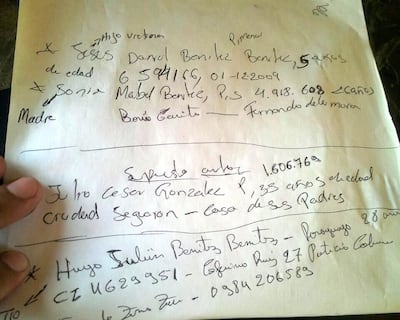 Hijo victima
Primera
Jesús Daniel Benitez Benitez, 5 años
de edad 6 594166, 01-12-2009
Sonia Mabel Benitez, P,S 4.918.608 años
Madre Barrio Fernando de la mora
Supuesto autor 1.606.769
Julio Cesar Gonzalez P, 35 años de edad
Ciudad - Casa de sus Padres
Hugo Julian Benitez Benitez - Paraguayo 28 años
CI 4629951 - Ruiz 27 Patricio
TIO de Zona - 0984206589